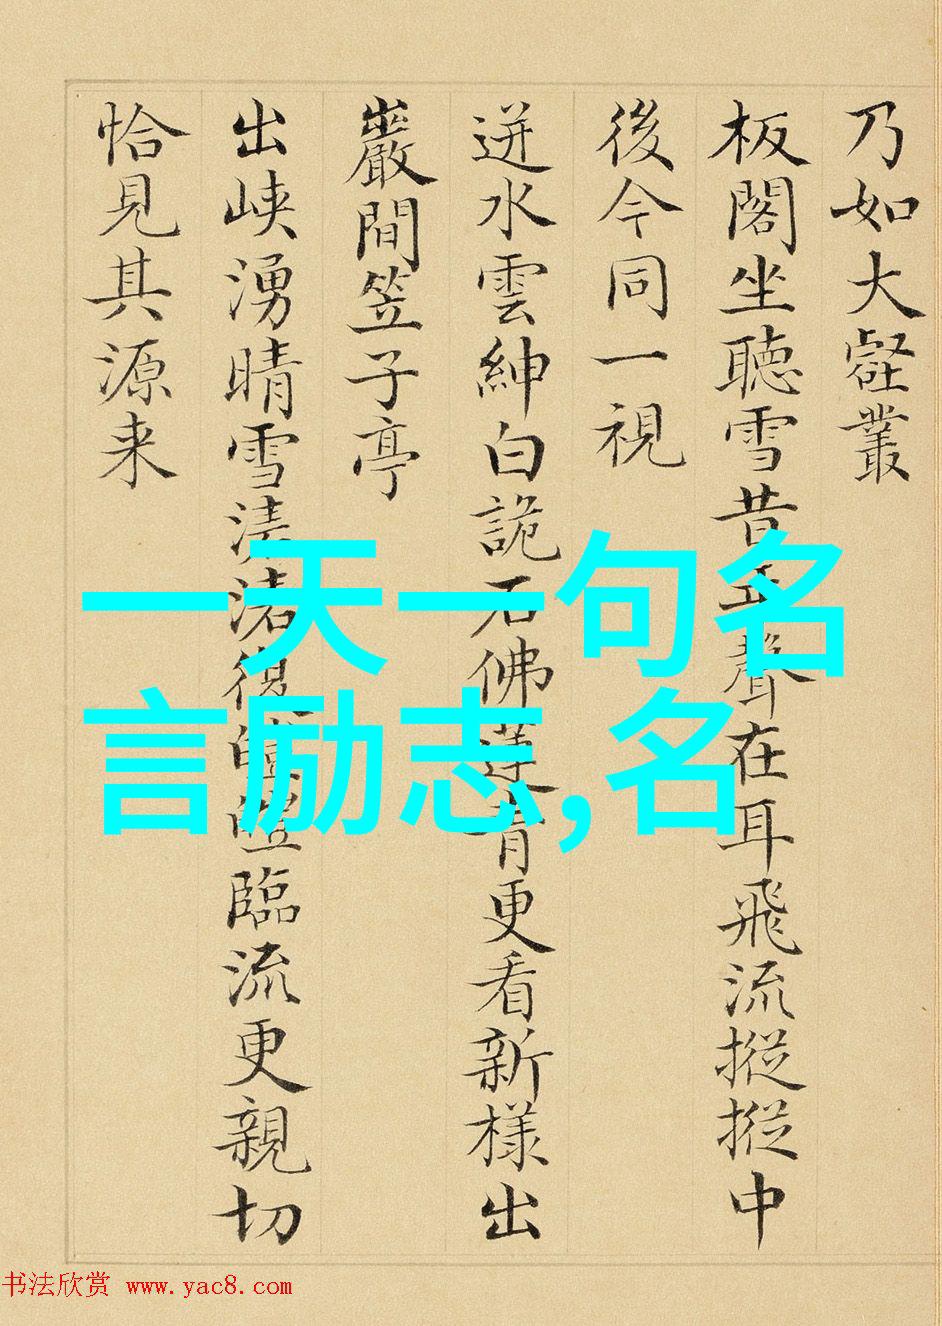 乃如大壑叢
板閣坐聽雪昔聲在耳飛流摐摐中
後今同一視
迸水雲紳白詭石佛蓮青更看新樣出
巖間笠子亭
出峽湧晴雪清渚復皚皚臨流更親切
恰見其源来
一天一句名
言励志,名
书法欣赏 www.yac8.com